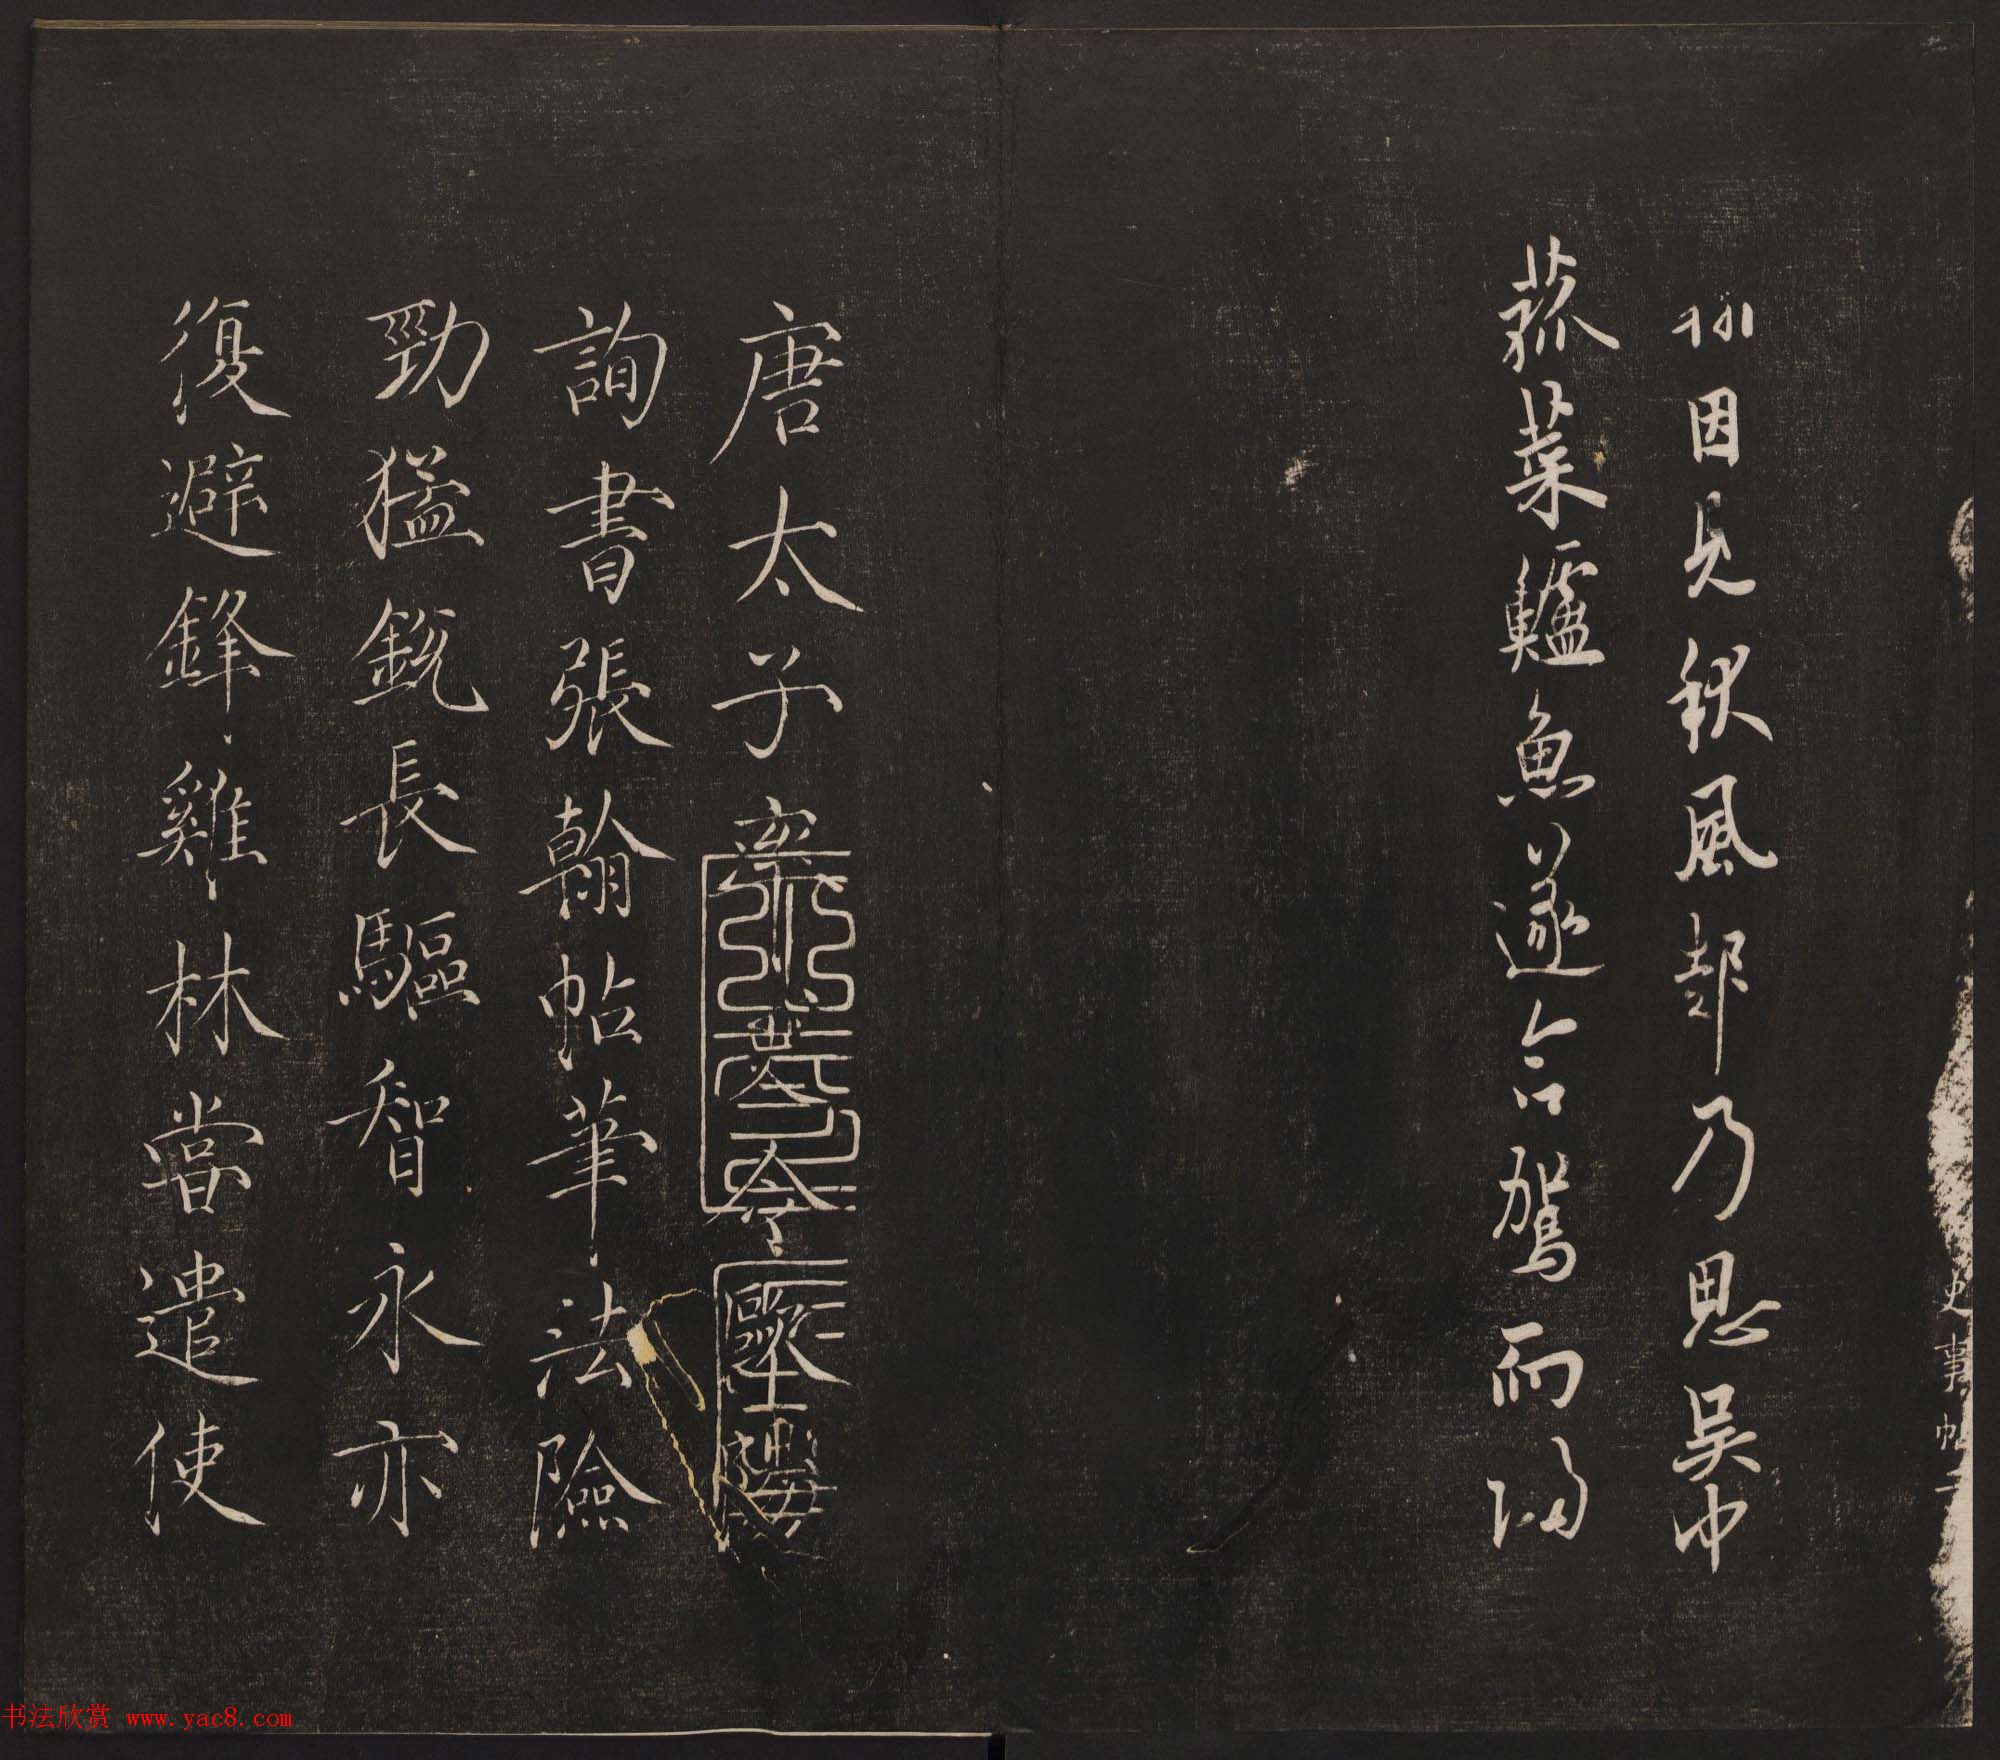 史事帖二
因見秋風起乃思吳中
菰菜鱸魚遂命駕而歸
唐太子率更令歐陽
詢書張翰帖筆法險
勁猛銳長驅智永亦
復避鋒雞林當遣使
书法欣赏 www.yac8.com